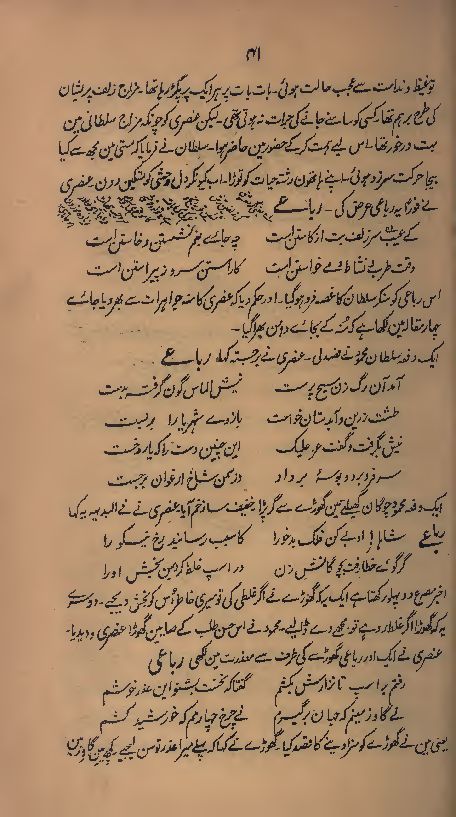 ۴۱
تو غیظ و ندامت سے عجب حالت ہوئی۔ بات بات پر ہر ایک پر بگڑ رہا تھا۔ مزاج زلف پریشان
کی طرح برہم تھا، کسی کو سامنے جانے کی جرات نہ ہوتی تھی۔ لیکن عنصری کو چونکہ مزاج سلطانی مین
بہت درخور تھا، اس لیے ہمت کر کے حضور مین حاضر ہوا۔ سلطان نے فرمایا کہ مستی مین مجھ سے کیا
بیجا حرکت سرزد ہوئی۔ اپنے ہاتھون رشتہ حیات کو توڑا۔ اب کیونکر دل وحشی کو تسکین دون۔ عنصری
نے فوراً یہ رباعی عرض کی۔ رباعے
کے عیب سر زلف بت از کاستن است چہ جائے بغم نشستن و خاستن است
وقت طرب و نشاط و مے خواستن است کاراستن سرو ز پیراستن است
اس رباعی کو سنکر سلطان کا غصہ فرو ہو گیا۔ اور حکم دیا کہ عنصری کا منہ جواہرات سے بھر دیا جائے
چہار مقالہ مین لکھا ہے کہ منہ کے بجائے دامن بھرا گیا۔
ایک دفعہ سلطان محمود نے فصد لی۔ عنصری نے برجستہ کہا، رباعے
آمد آن رگ زن مسیح پرست نیش الماس گون گرفتہ بدست
طشت زرین و آبدستان خواست بازوے شہریار را بر بست
نیش بگرفت و گفت عز علیک این چنین دست را کہ یارد خست
سر فرو برد و بوسۂ برداد وز سمن شاخ ارغوان برجست
ایک دفعہ محمود چوگان کھیلنے مین گھوڑے سے گر پڑا خفیف سا زخم آیا، عنصری نے فی البدیہہ یہ کہا
رباعے شاہا ادبے کن فلک بدخو را کاسیب رسانید رخ نیکو را
گر گوے خطا رفت بچوگانش زن ور اسپ غلط کرد بمن بخش او را
اخیر مصرع دو پہلو رکھتا ہے ایک یہ کہ گھوڑے نے اگر غلطی کی تو میری خاطر اوس کو بخش دیجیے۔ دوسرے
یہ کہ گھوڑا اگر غلط رو ہے تو مجھے دے ڈالیے۔ محمود نے اس حسن طلب کے صلہ مین گھوڑا عنصری کو دیدیا۔
عنصری نے ایک اور رباعی گھوڑے کی طرف سے معذرت مین لکھی۔ رباعی
رفتم بر اسپ تا بزارش بکشم گفتا کہ نخست بشنو این عذر خوشم
نے گاو زمینم کہ جہان برگیرم نے چرخ چہارم کہ خورشید کشم
یعنی مین نے گھوڑے کو سزا دینے کا قصد کیا۔ گھوڑے نے کہا کہ پہلے میرا عذر تو سن لیجیے کچھ مین گاو زمین